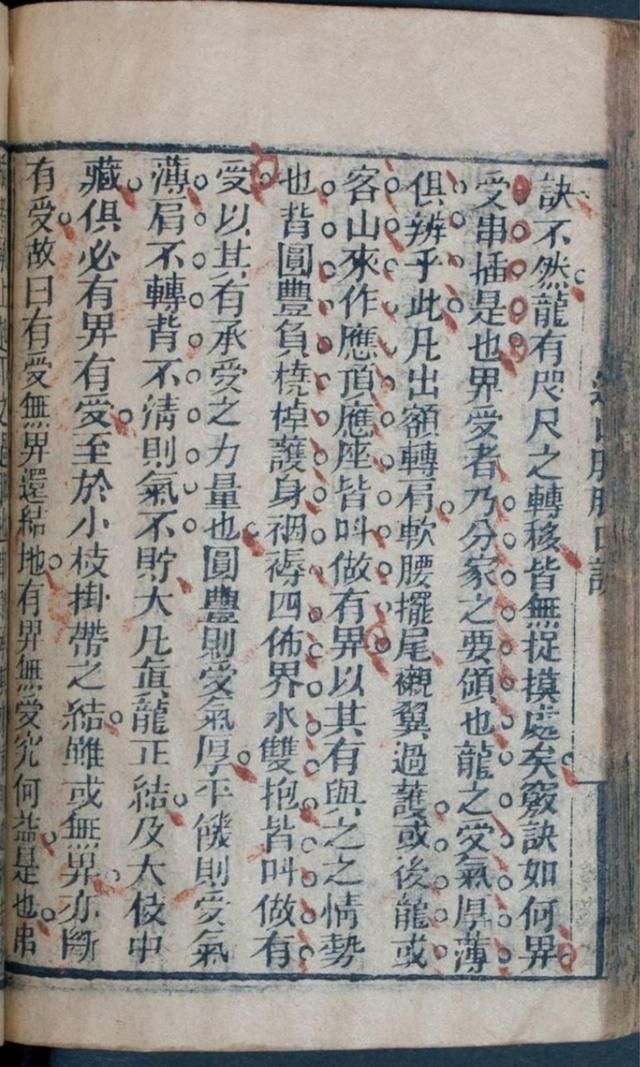 訣不然龍有咫尺之轉移皆無捉摸處矣竅訣如何界
受串插是也界受者乃分家之要領也龍之受氣厚薄
俱辨乎此凡出額轉肩軟腰擺尾襯翼過護或後龍或
客山來作應頂應座皆呌做有界以其有與之之情勢
也背圓豐負橈棹護身裀褥四佈界水雙抱皆呌做有
受以其有承受之力量也圓豐則受氣厚平饑則受氣
薄肩不轉背不淸則氣不貯大凡眞龍正結及大伎中
藏俱必有界有受至於小枝掛帶之結雖或無界亦斷
有受故曰有受無界還結地有界無受究何益是也串